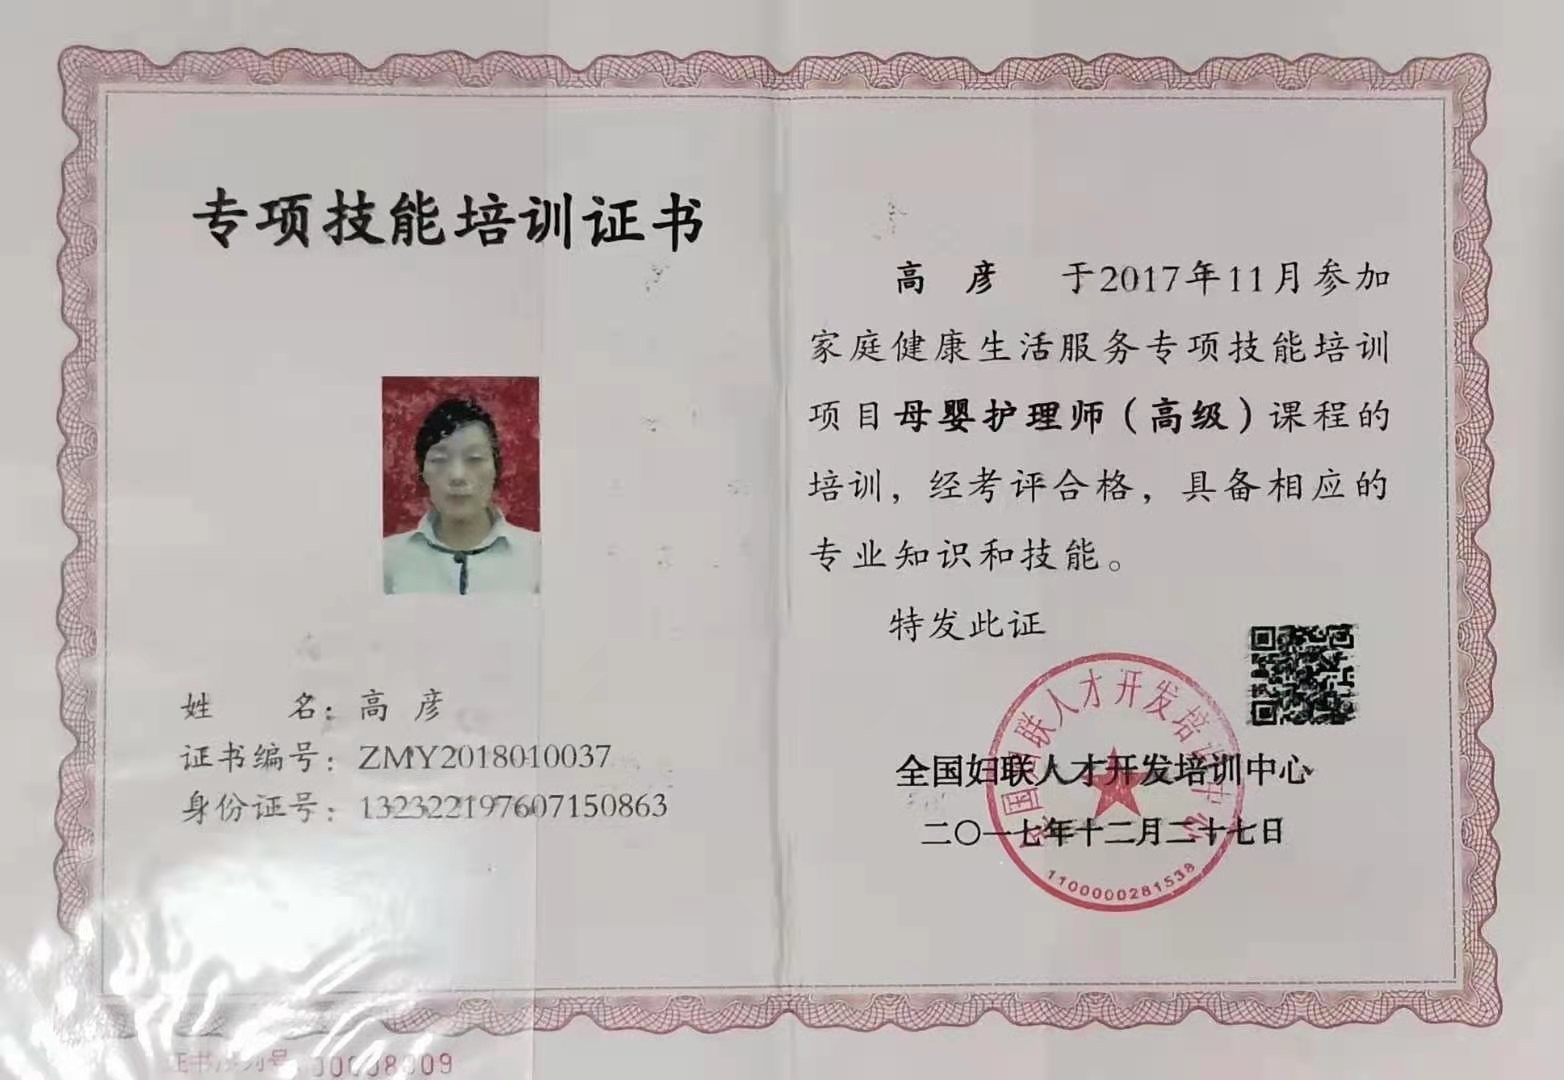 专项技能培训证书
姓 名：高 彦
证书编号：ZMY2018010037
身份证号：132322197607150863
高 彦 于2017年11月参加
家庭健康生活服务专项技能培训
项目母婴护理师（高级）课程的
培训，经考评合格，具备相应的
专业知识和技能。
特发此证
全国妇联人才开发培训中心
全国妇联人才开发培训中心
二〇一七年十二月二十七日
1100000281538
证书序列号